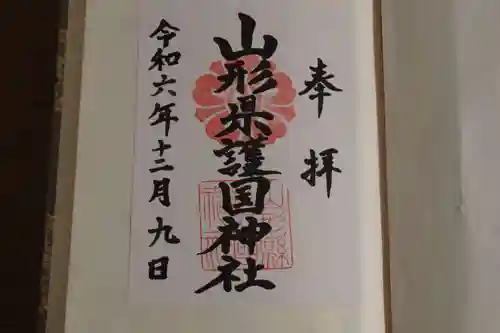 奉拝
山形県護国神社
令和六年十二月九日